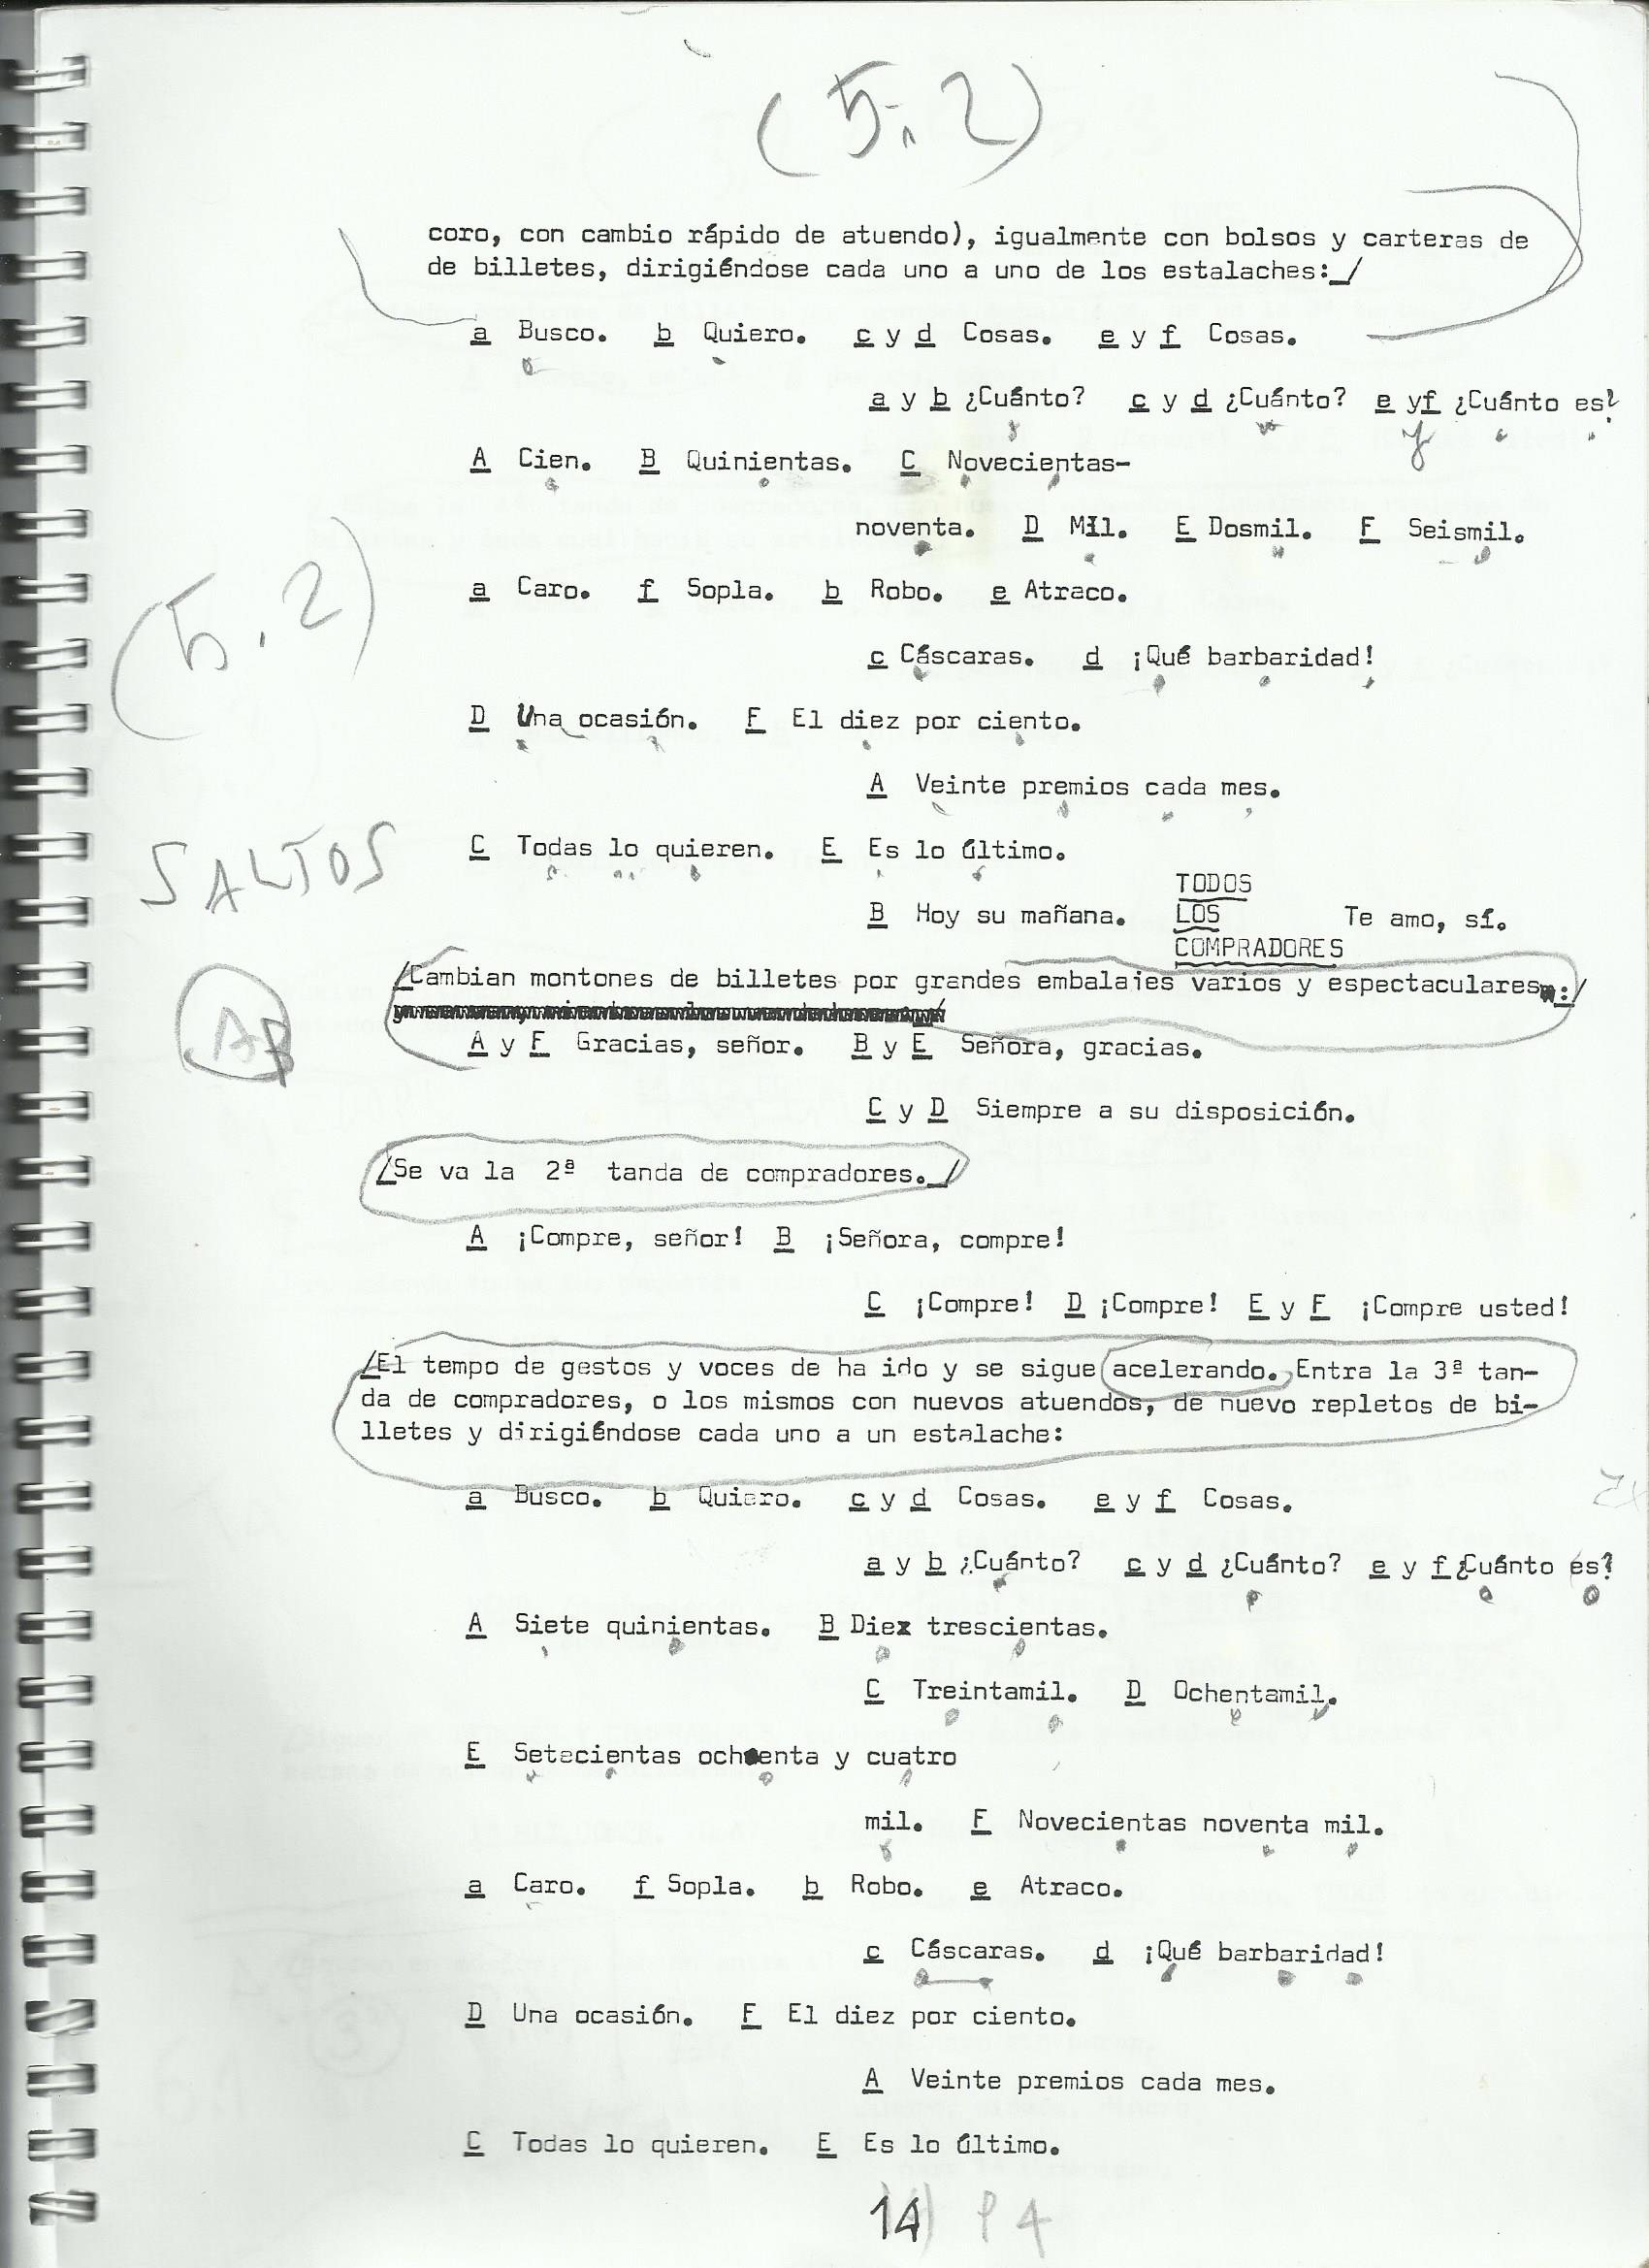 (5.2)
coro, con cambio rápido de atuendo), igualmente con bolsos y carteras de
de billetes, dirigiéndose cada uno a uno de los estalaches:_/
a Busco. b Quiero. c y d Cosas. e y f Cosas.
a y b ¿Cuánto? c y d ¿Cuánto? e yf ¿Cuánto es?
A Cien. B Quinientas. C Novecientas-
noventa. D Mil. E Dosmil. F Seismil.
(5.2)
a Caro. f Sopla. b Robo. e Atraco.
c Cáscaras. d ¡Qué barbaridad!
D Una ocasión. F El diez por ciento.
A Veinte premios cada mes.
SALTOS
C Todas lo quieren. E Es lo último.
B Hoy su mañana. TODOS LOS COMPRADORES Te amo, sí.
/Cambian montones de billetes por grandes embalajes varios y espectaculares.:/
A y F Gracias, señor. B y E Señora, gracias.
C y D Siempre a su disposición.
/Se va la 2ª tanda de compradores._/
A ¡Compre, señor! B ¡Señora, compre!
C ¡Compre! D ¡Compre! E y F ¡Compre usted!
/El tempo de gestos y voces de ha ido y se sigue acelerando. Entra la 3ª tan-
da de compradores, o los mismos con nuevos atuendos, de nuevo repletos de bi-
lletes y dirigiéndose cada uno a un estalache:
a Busco. b Quiero. c y d Cosas. e y f Cosas.
a y b ¿Cuánto? c y d ¿Cuánto? e y f ¿Cuánto es?
A Siete quinientas. B Diez trescientas.
C Treintamil. D Ochentamil.
E Setecientas ochenta y cuatro
mil. F Novecientas noventa mil.
a Caro. f Sopla. b Robo. e Atraco.
c Cáscaras. d ¡Qué barbaridad!
D Una ocasión. F El diez por ciento.
A Veinte premios cada mes.
C Todas lo quieren. E Es lo último.
14 P4